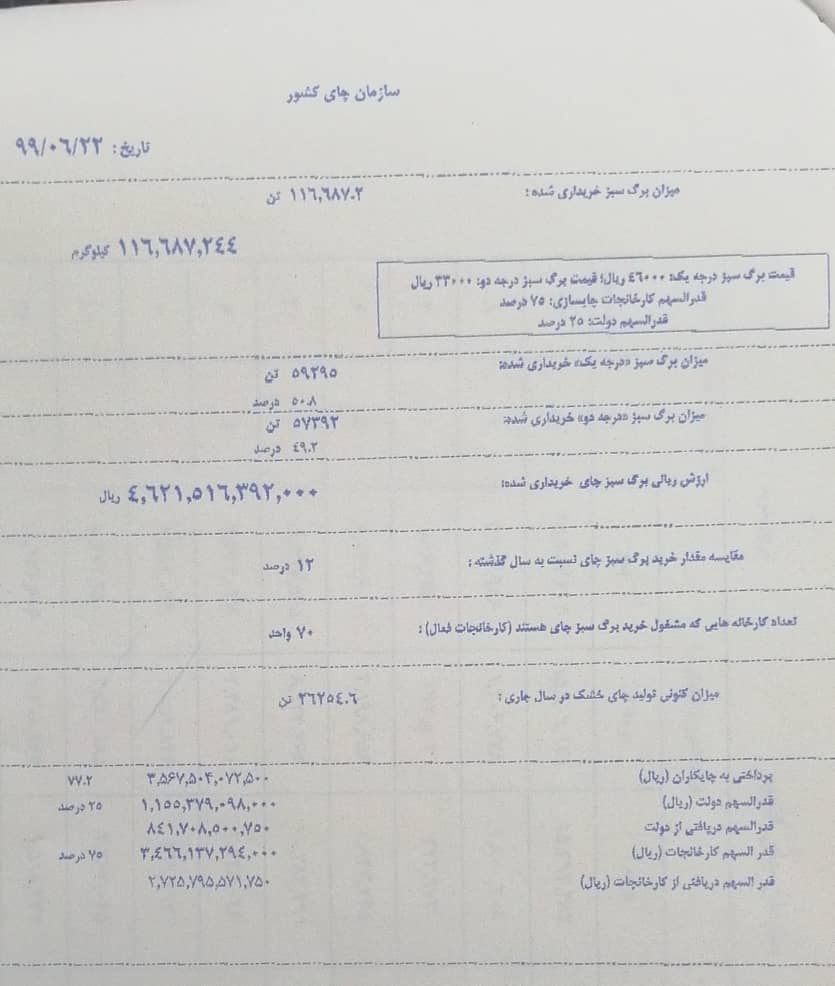 سازمان چای کشور
تاریخ: ۹۹/۰۶/۲۲
میزان برگ سبز خریداری شده: ۱۱۶,۶۸۷.۲ تن
۱۱۶,۶۸۷,۲۴۴ کیلوگرم
قیمت برگ سبز درجه یک: ۴۶۰۰۰ ریال؛ قیمت برگ سبز درجه دو: ۳۳۰۰۰ ریال
قدرالسهم کارخانجات چایسازی: ۷۵ درصد
قدرالسهم دولت: ۲۵ درصد
میزان برگ سبز «درجه یک» خریداری شده: ۵۹۲۹۵ تن
۵۰.۸ درصد
میزان برگ سبز «درجه دو» خریداری شده: ۵۷۳۹۲ تن
۴۹.۲ درصد
ارزش ریالی برگ سبز چای خریداری شده: ۴,۶۲۱,۵۱۶,۳۹۲,۰۰۰ ریال
مقایسه مقدار خرید برگ سبز چای نسبت به سال گذشته: ۱۲ درصد
تعداد کارخانه هایی که مشغول خرید برگ سبز چای هستند (کارخانجات فعال): ۷۰ واحد
میزان کنونی تولید چای خشک در سال جاری: ۲۶۲۵۴.۶ تن
پرداختی به چایکاران (ریال) ۳,۵۶۷,۵۰۴,۰۷۲,۵۰۰ ۷۷.۲
قدرالسهم دولت (ریال) ۱,۱۵۵,۳۷۹,۰۹۸,۰۰۰ ۲۵ درصد
قدرالسهم دریافتی از دولت ۸۴۱,۷۰۸,۵۰۰,۷۵۰
قدر السهم کارخانجات (ریال) ۳,۴۶۶,۱۳۷,۲۹۴,۰۰۰ ۷۵ درصد
قدر السهم دریافتی از کارخانجات (ریال) ۲,۷۲۵,۷۹۵,۵۷۱,۷۵۰